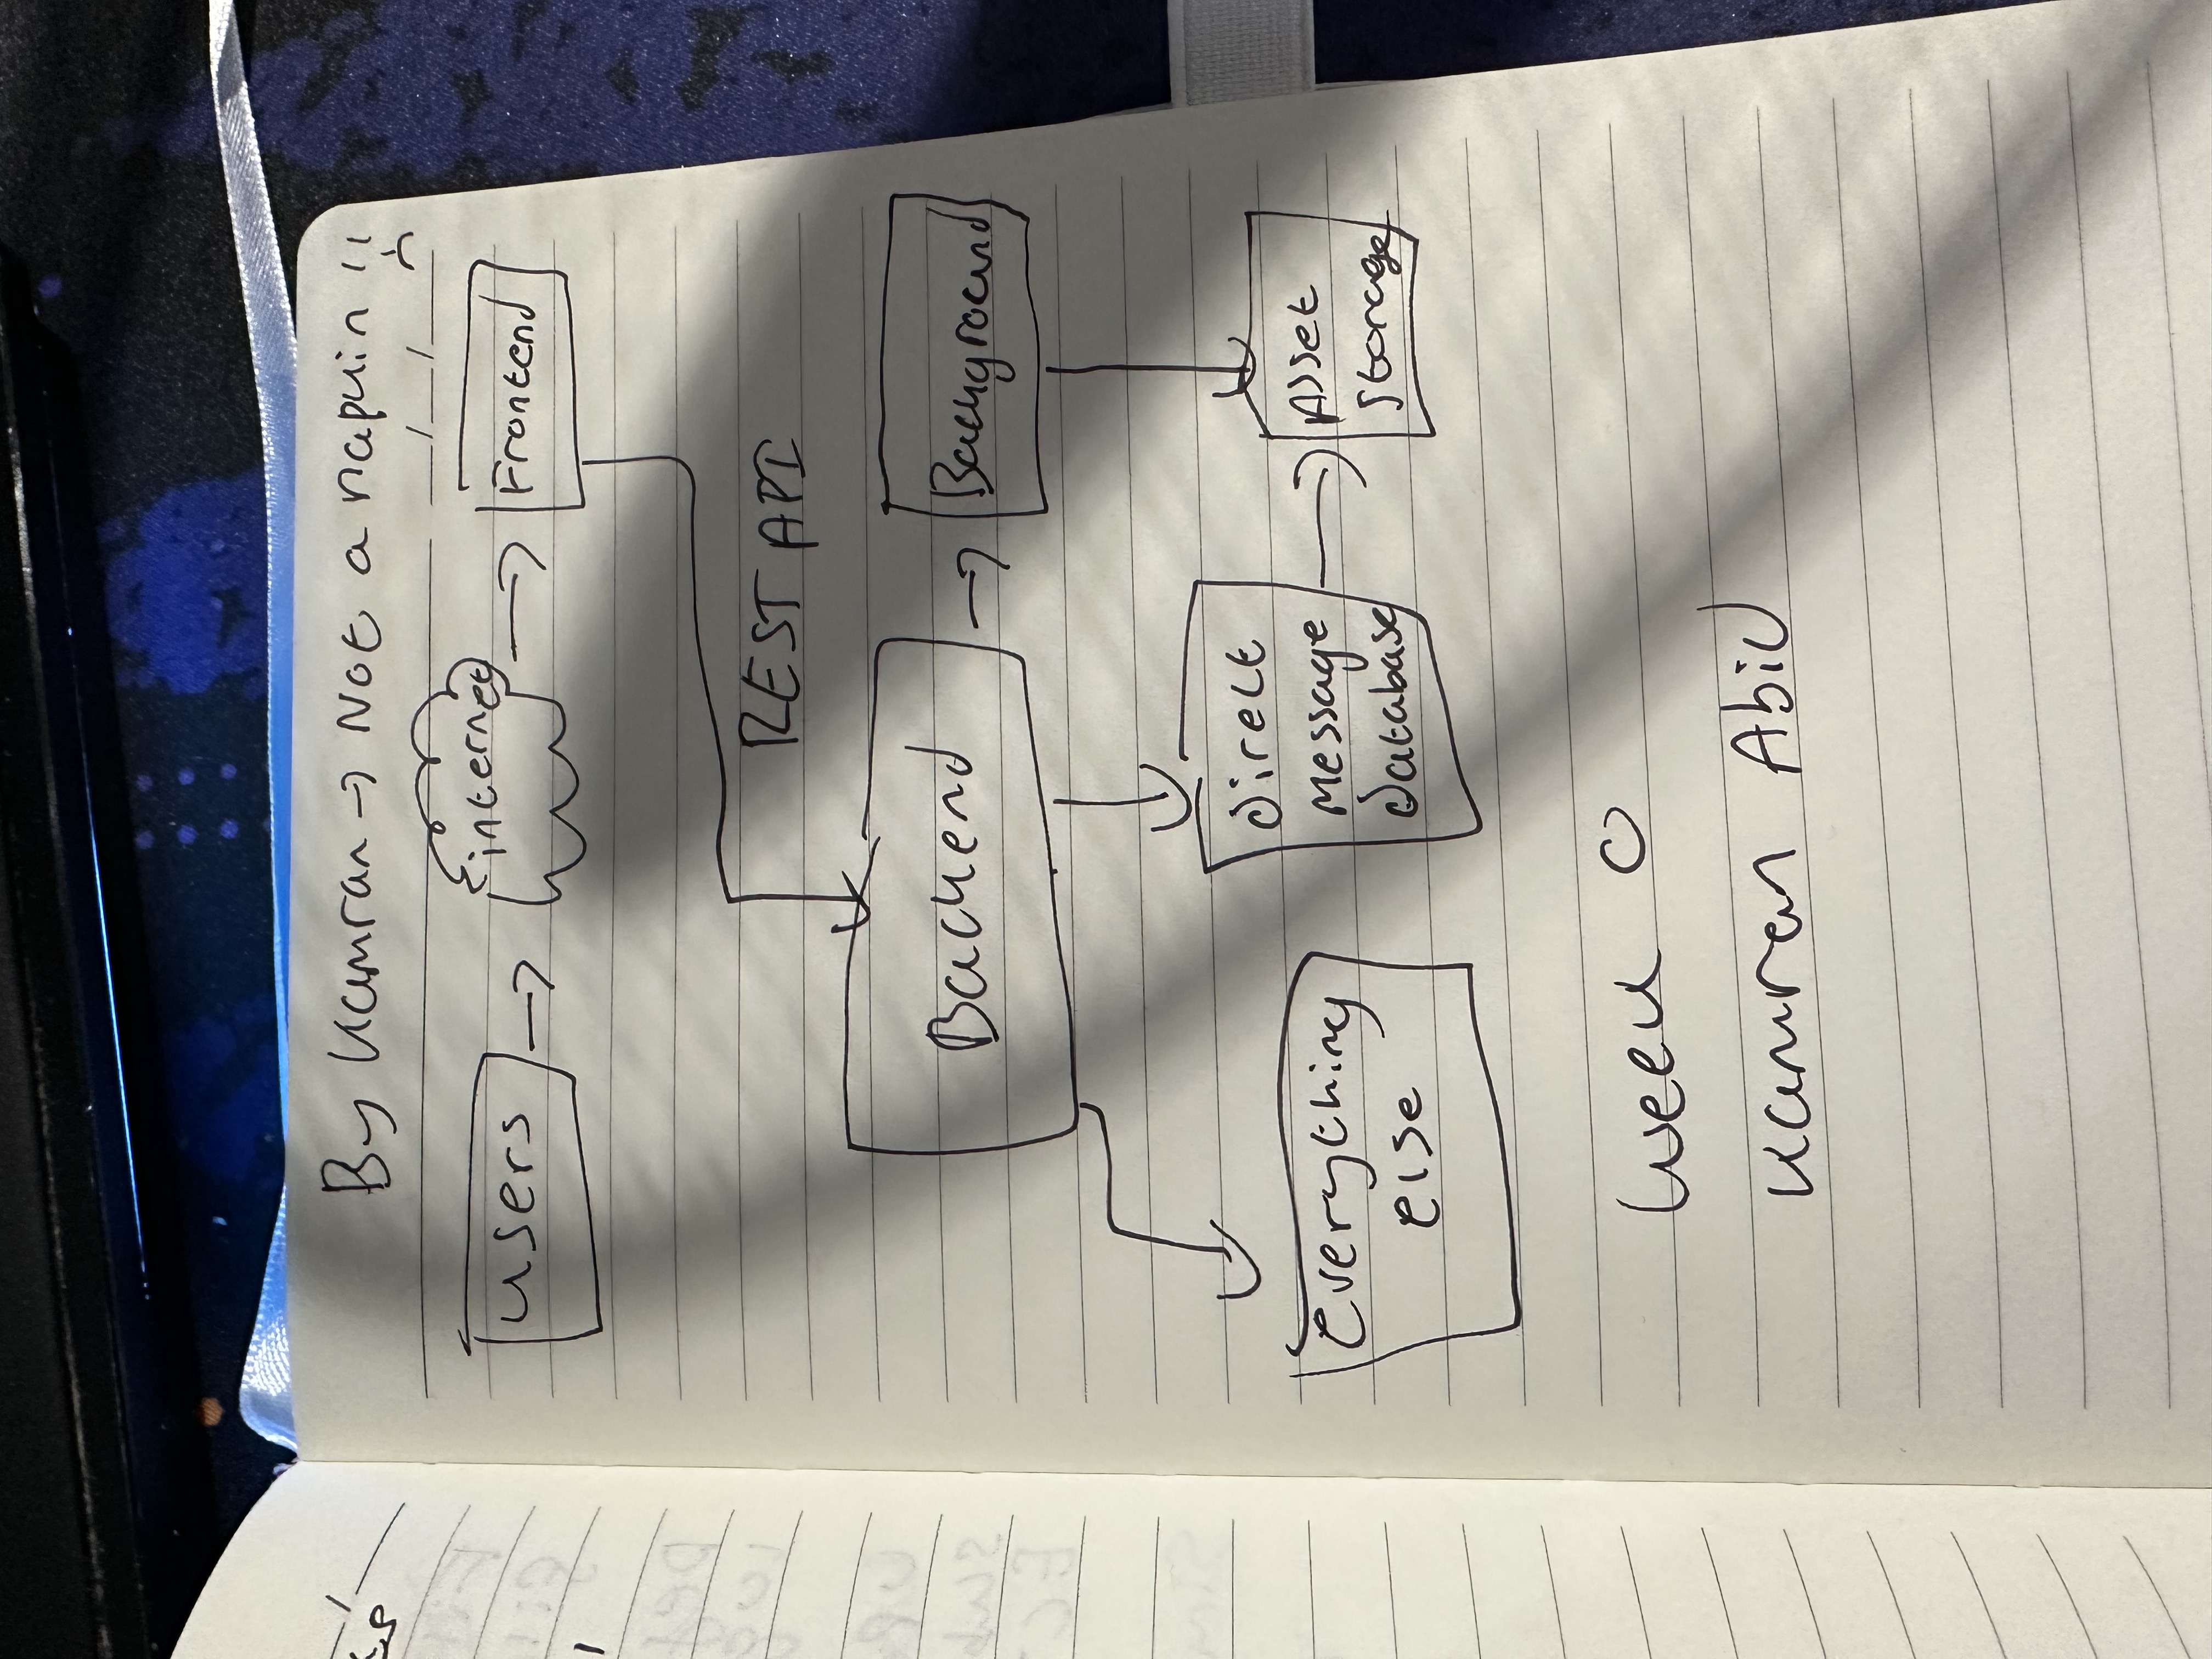 By Kamran → Not a napkin !!
users → internet → Frontend
REST API
Backend → Background
everything
else
direct
message
database
Asset
storage
Week 0
Kamran Abid